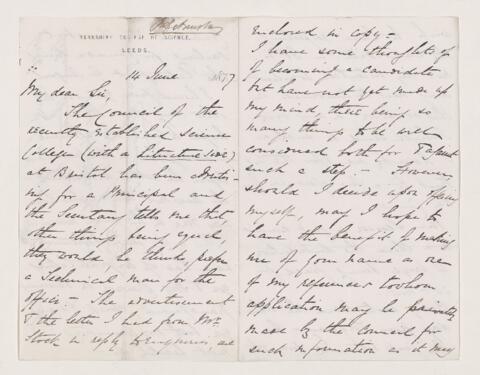 YORKSHIRE COLLEGE OF SCIENCE,
LEEDS.
14 June 1877
My dear Sir,
The Council of the
recently established Science
College (with a Literature side)
at Bristol has been advertis-
ing for a Principal and
the Secretary tells me that,
other things being equal,
they would, he thinks, prefer
a Technical man for the
office - The advertisement
& the letter I had from Mr.
Stock in reply to enquiries, are
enclosed in copy -
I have some thoughts of
of becoming a candidate
but have not yet made up
my mind, there being so
many things to be well
considered both for & against
such a step. - However
should I decide upon offering
myself, may I hope to
have the benefit of making
use of your name as one
of my references to whom
application may be privately
made by the Council for
such information as it may